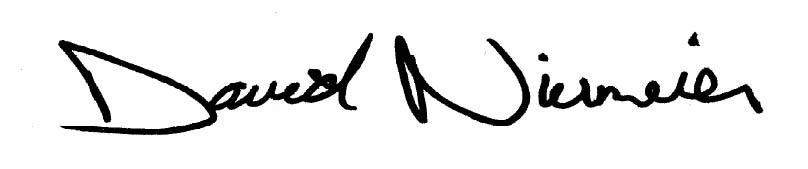 David Niermeier